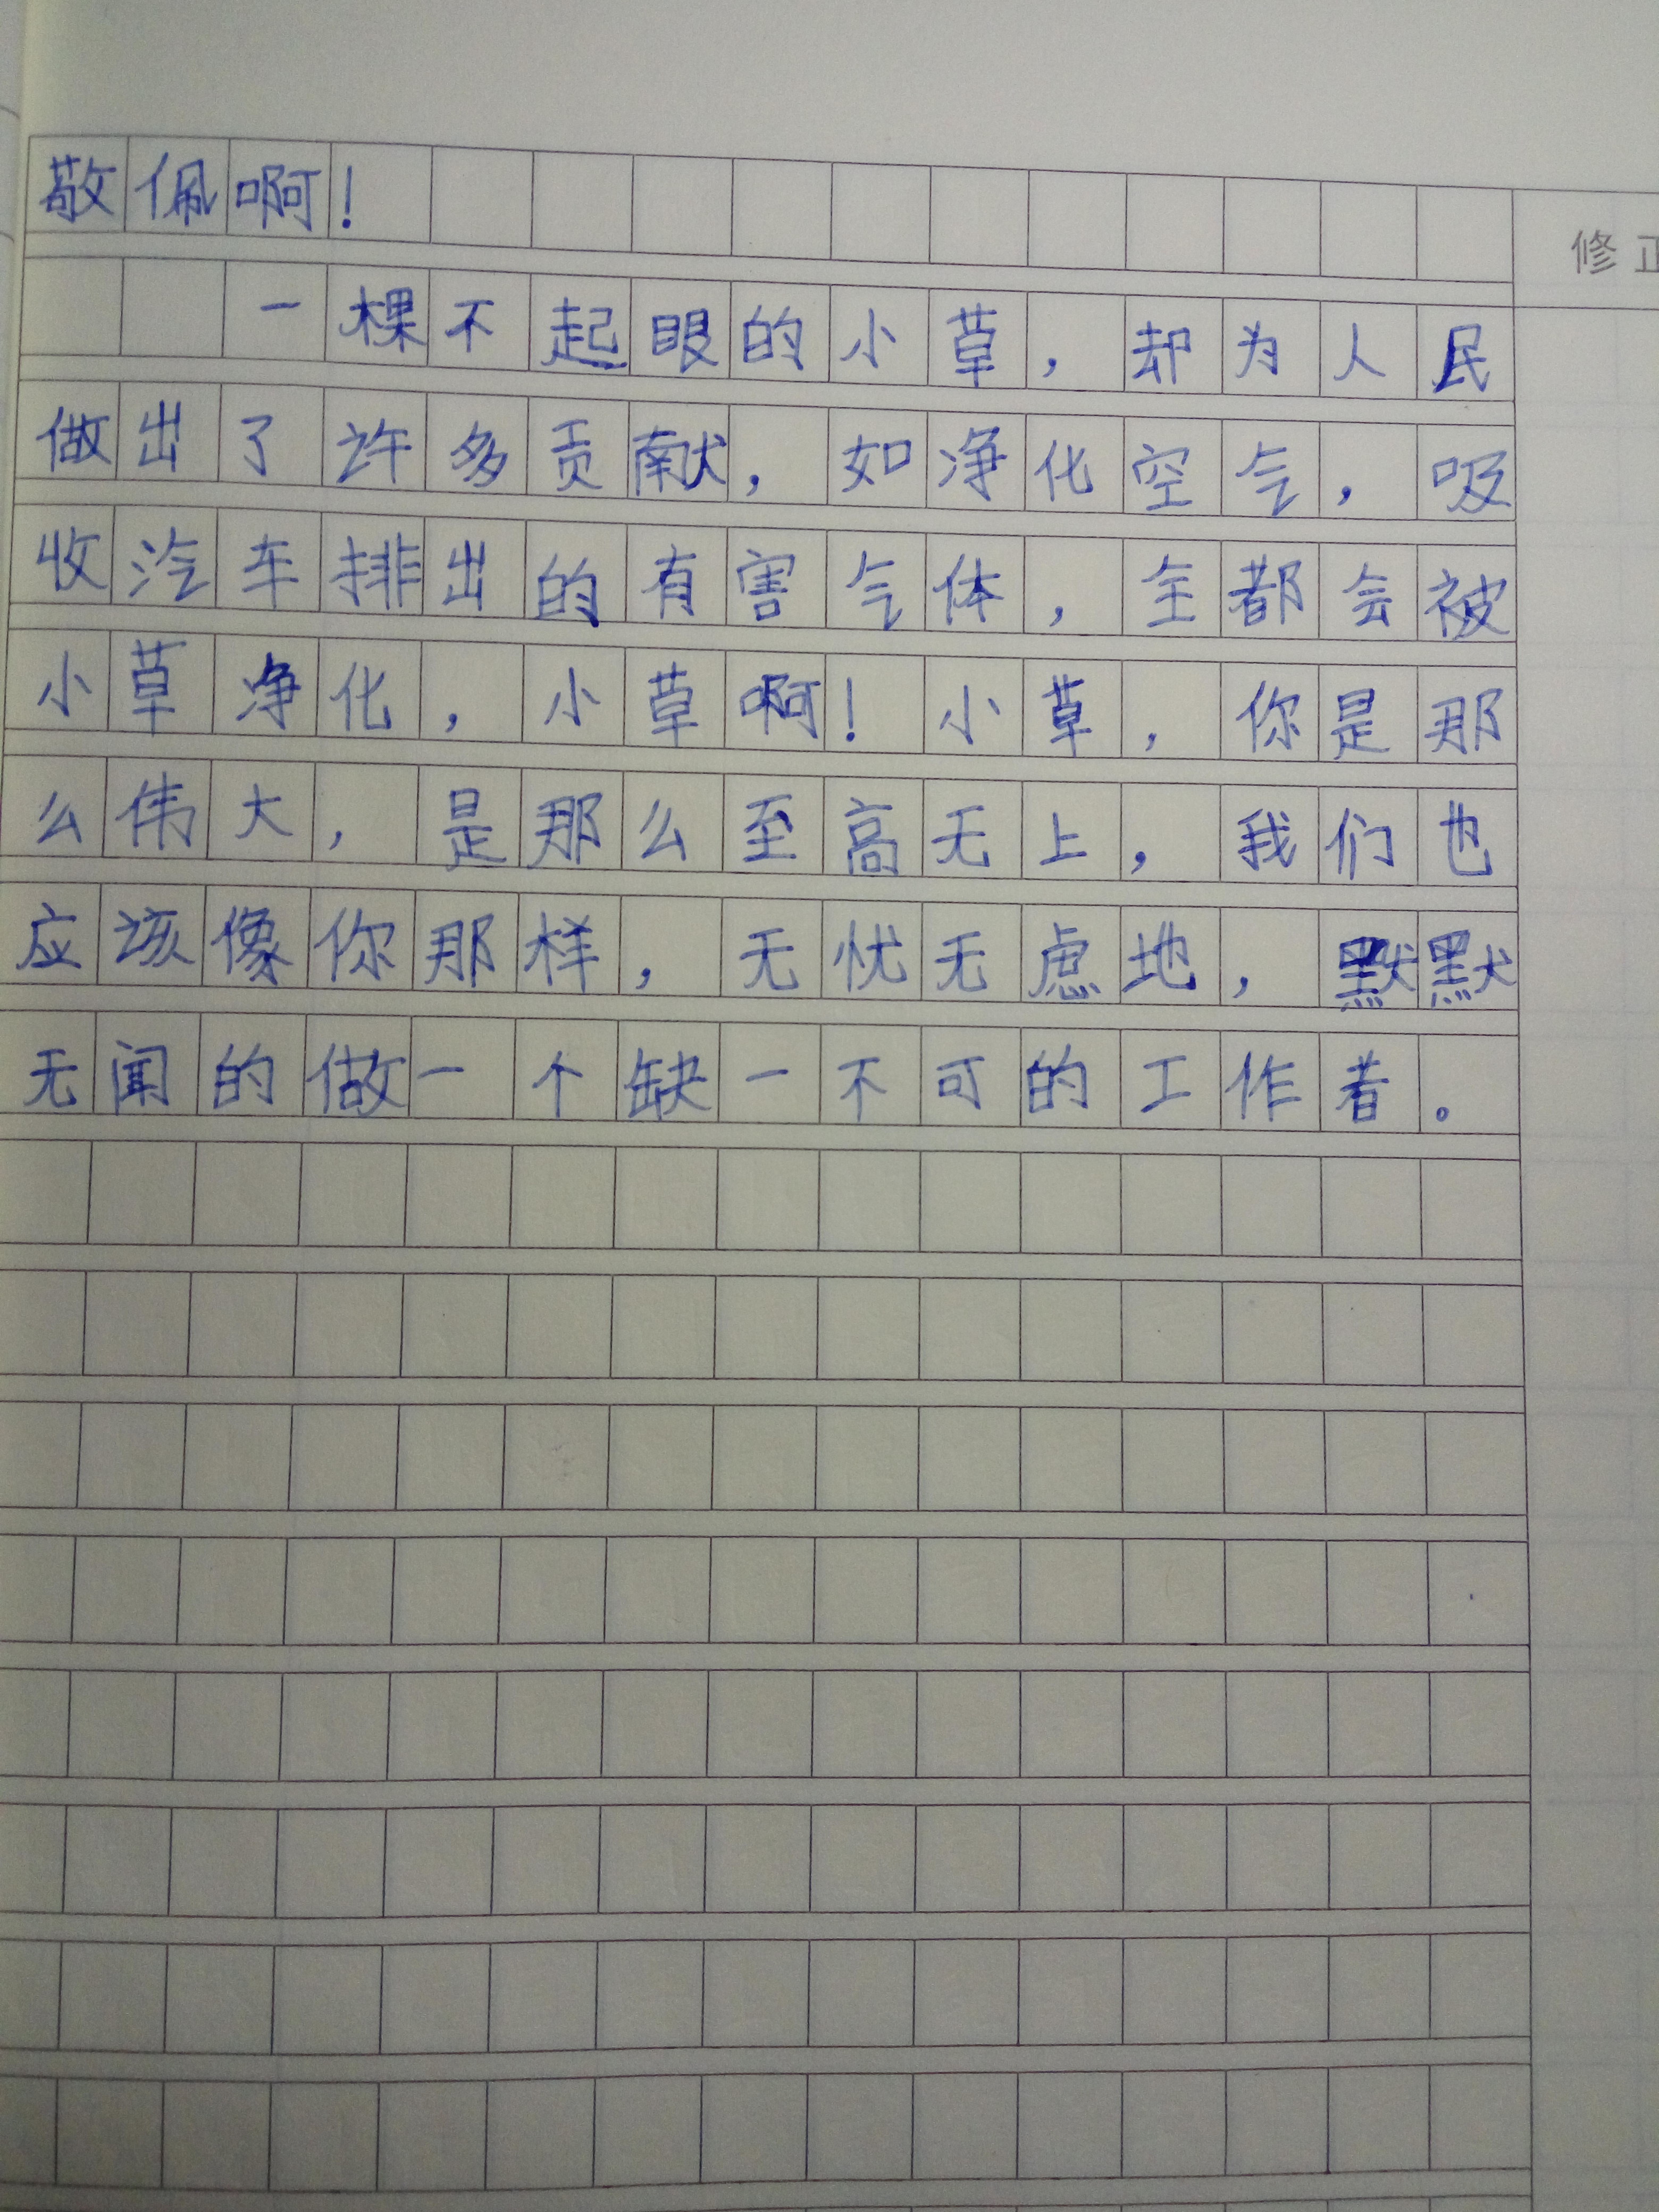 敬佩啊！
修正
一棵不起眼的小草，却为人民
做出了许多贡献，如净化空气，吸
收汽车排出的有害气体，全都会被
小草净化，小草啊！小草，你是那
么伟大，是那么至高无上，我们也
应该像你那样，无忧无虑地，默默
无闻的做一个缺一不可的工作者。